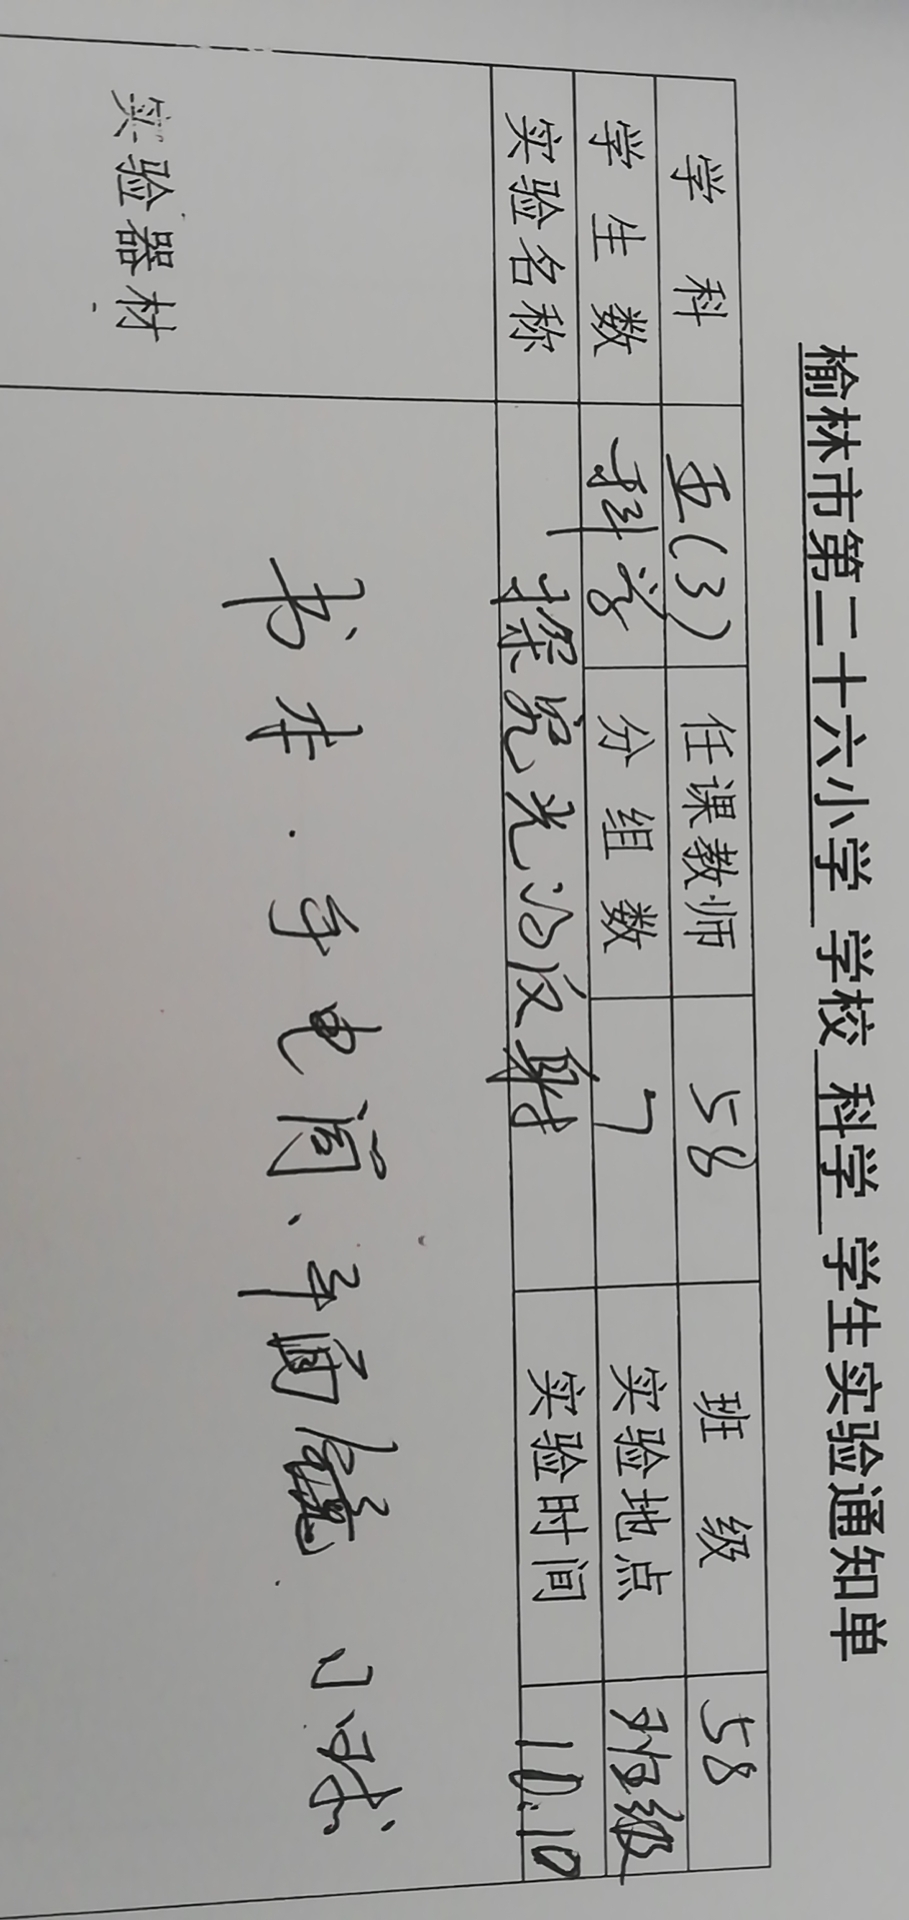 榆林市第二十六小学 学校 科学 学生实验通知单
学科 五(3) 任课教师 58 班级 58
学生数 科学 分组数 7 实验地点 班级
实验名称 探究光的反射 实验时间 10.10
实验器材 书本、手电筒、平面镜 小球